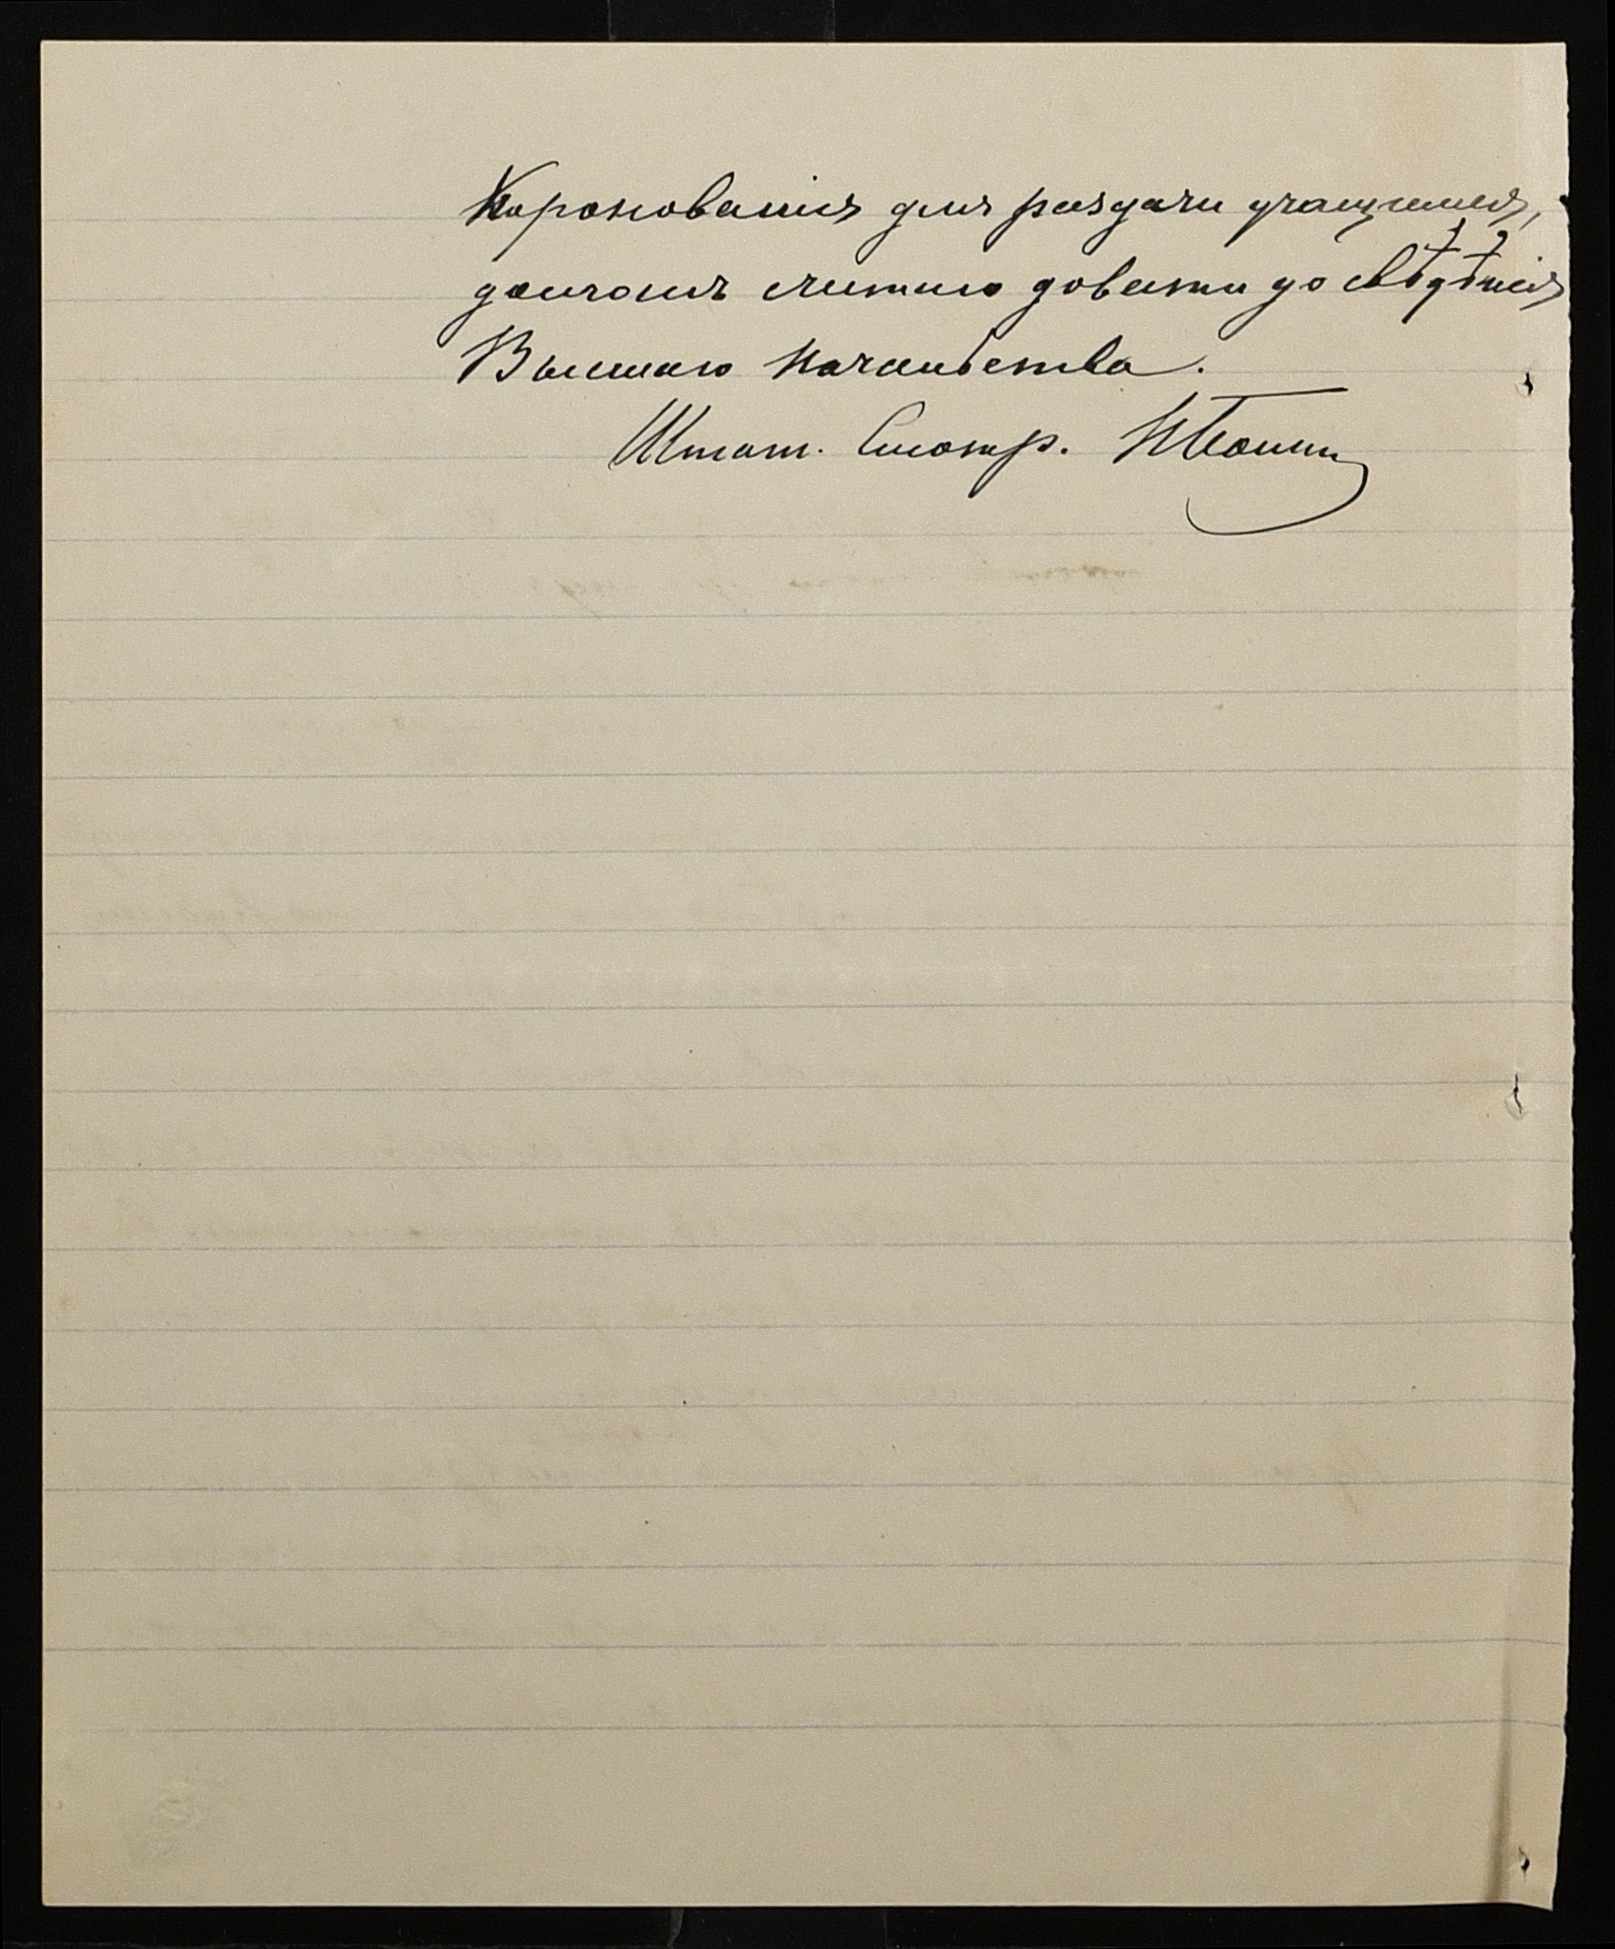 Коронованія для раздачи учащимся,
долгомъ считаю довести до свѣдѣнія
Высшаго Начальства.
Штат. Смотр.